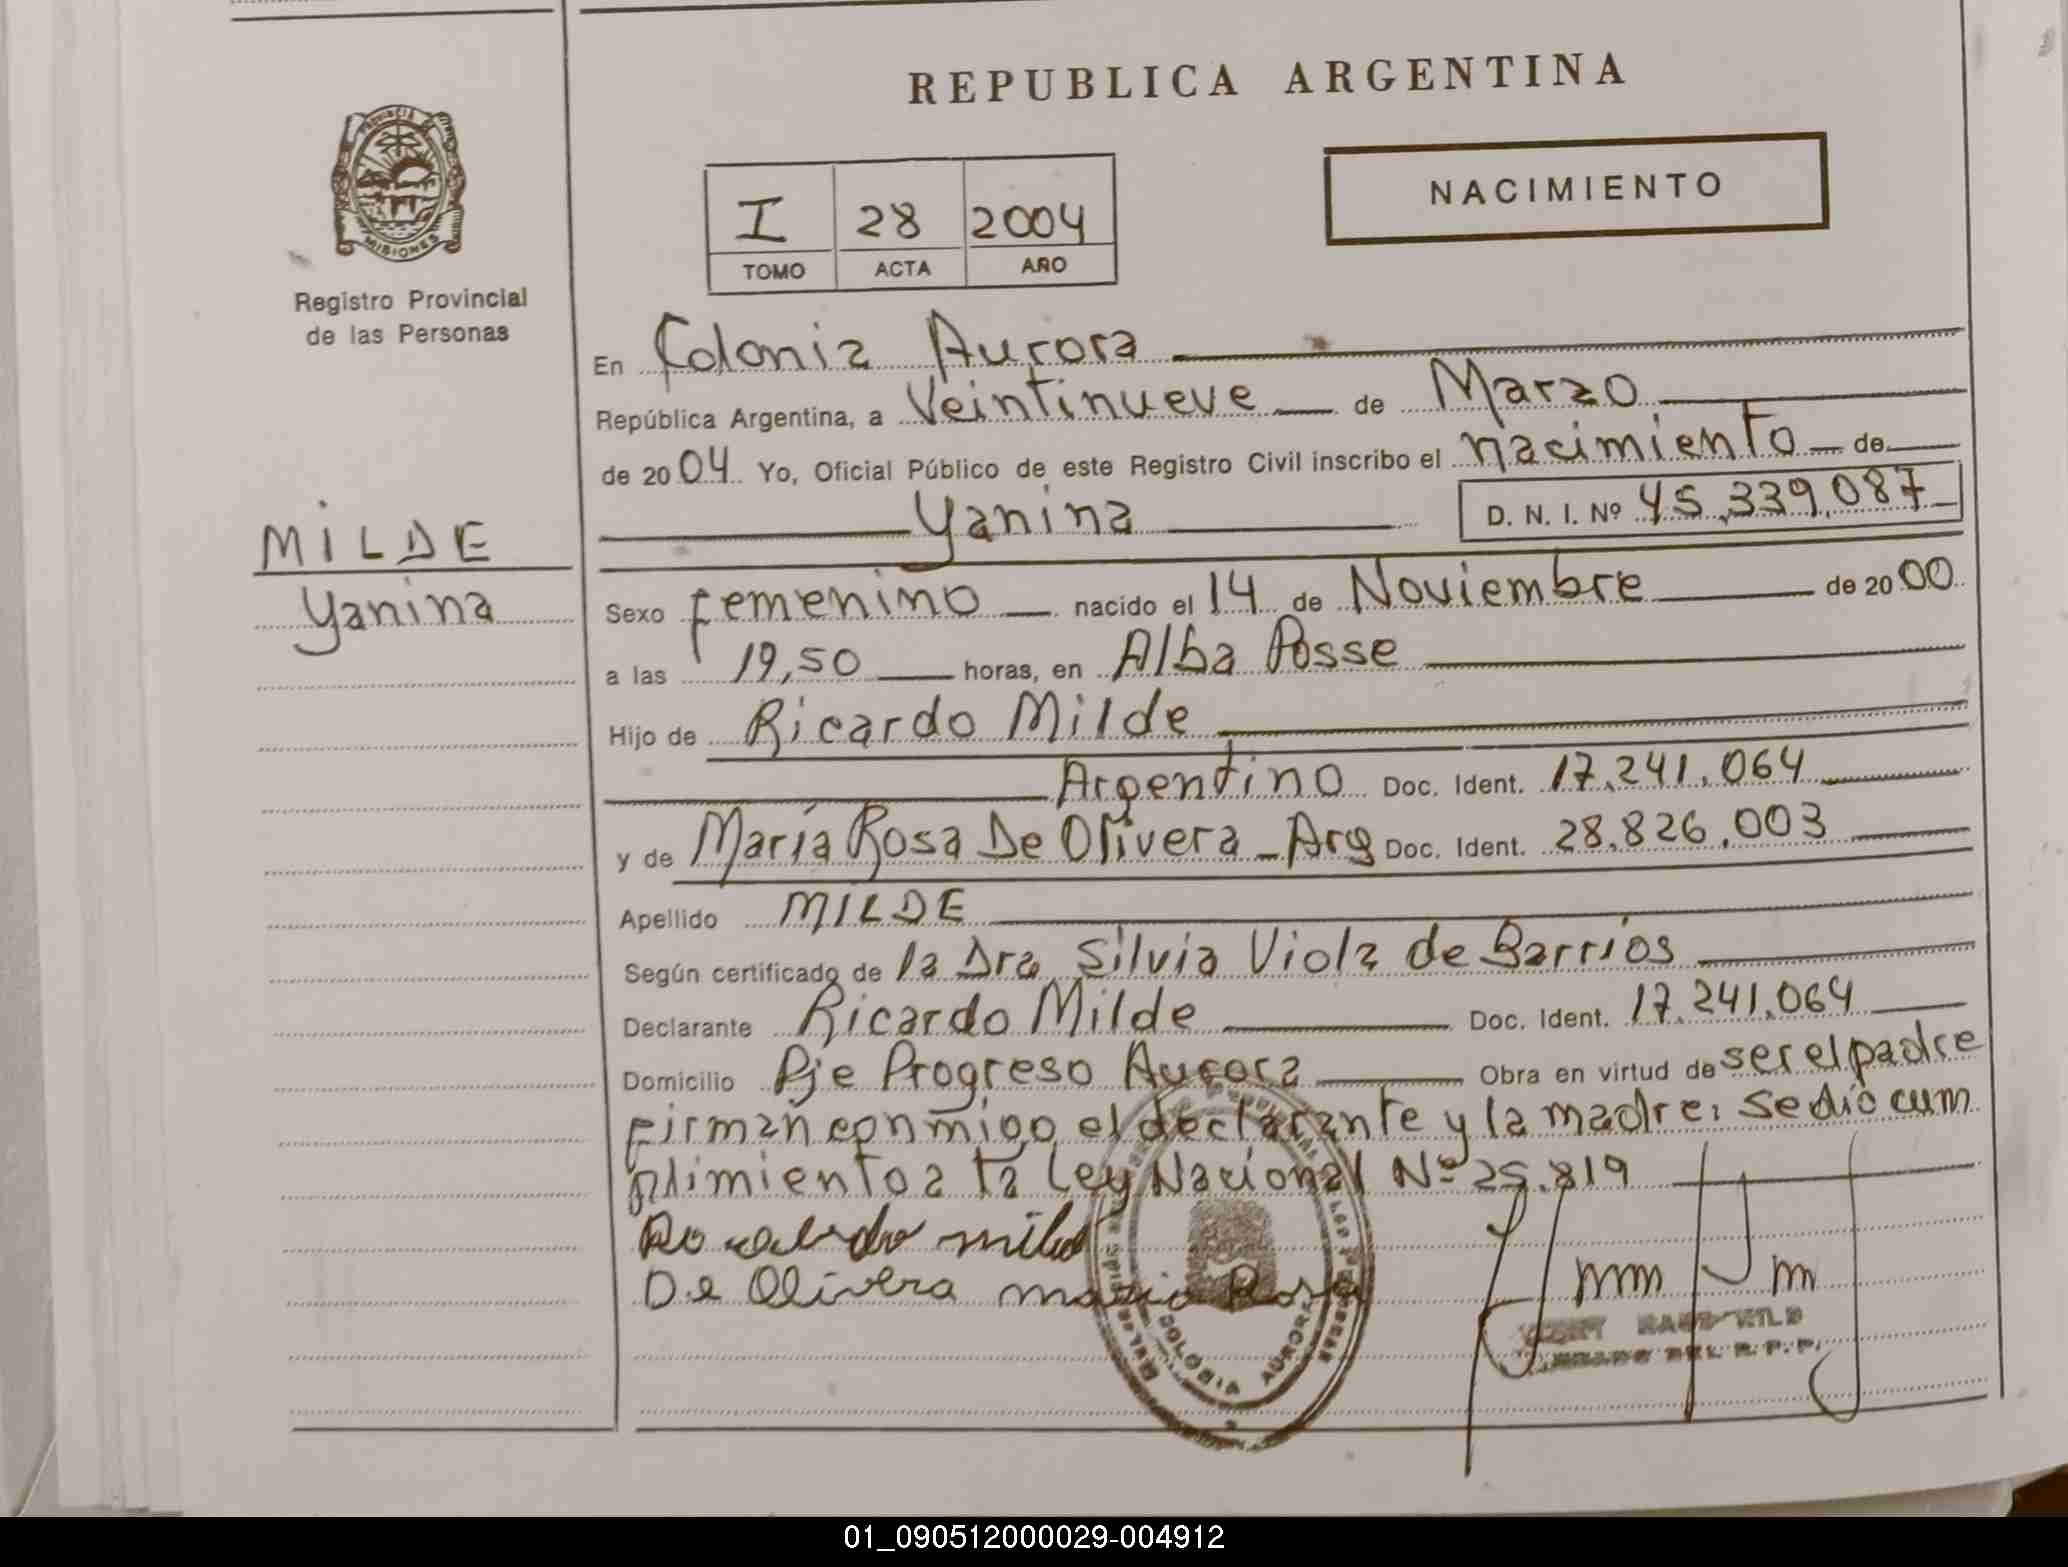 REPUBLICA ARGENTINA
PROVINCIA
MISIONES
Registro Provincial
de las Personas
I 28 2004
TOMO ACTA AÑO
NACIMIENTO
En Colonia Aurora
República Argentina, a Veintinueve de Marzo
de 2004 Yo, Oficial Público de este Registro Civil inscribo el nacimiento de
Yanina D. N. I. Nº 45.339.087
MILDE
Yanina
Sexo femenino nacido el 14 de Noviembre de 2000
a las 19,50 horas, en Alba Posse
Hijo de Ricardo Milde
Argentino Doc. Ident. 17.241.064
y de María Rosa De Olivera - Arg Doc. Ident. 28.826.003
Apellido MILDE
Según certificado de la Dra Silvia Viola de Barrios
Declarante Ricardo Milde Doc. Ident. 17.241.064
Domicilio Pje Progreso Aurora Obra en virtud de ser el padre
firman conmigo el declarante y la madre: se dió cum
plimiento a la Ley Nacional Nº 25.819
De Olivera maria Rosa
COLONIA AURORA
DEL R.P.P.
01_090512000029-004912